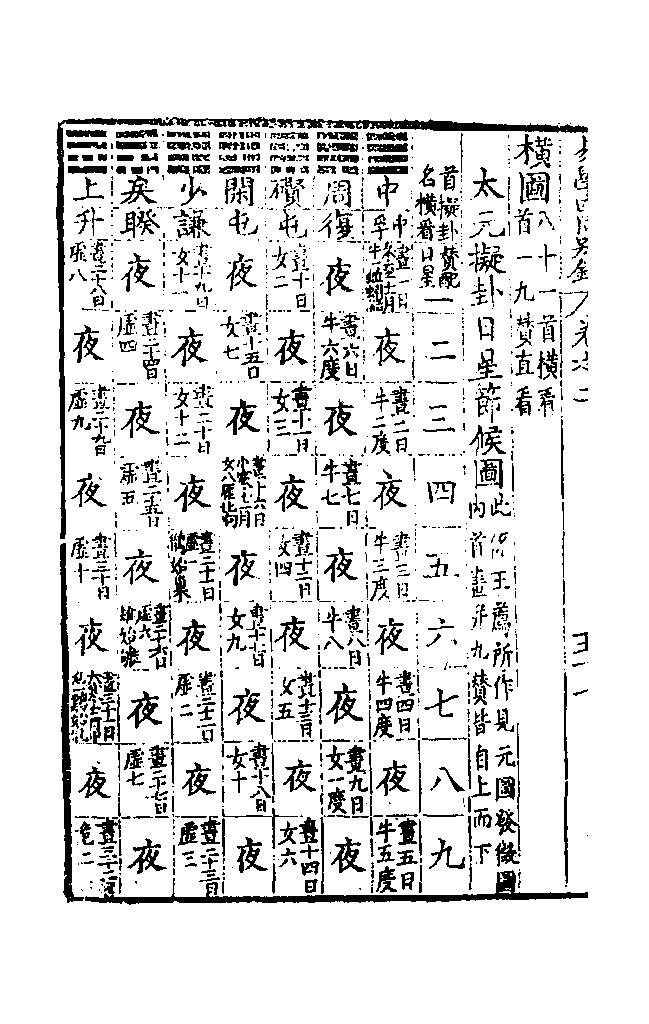 橫圖八十一首橫看
首一九贊直看
太元擬卦日星節候圖此係王薦所作見元圖發微圖
內首畫幷九贊皆自上而下
首擬卦贊配
名橫看日星
一
二
三
四
五
六
七
八
九
中
中孚
晝一日
夜
晝二日
牛二度
夜
晝三日
牛三度
夜
晝四日
牛四度
夜
晝五日
牛五度
周復
夜
晝六日
牛六度
夜
晝七日
牛七
夜
晝八日
牛八
夜
晝九日
女一度
夜
礥屯
晝十日
女二
夜
晝十一日
女三
夜
晝十二日
女四
夜
晝十三日
女五
夜
晝十四日
女六
閑屯
夜
晝十五日
女七
夜
晝十六日
夜
晝十七日
女九
夜
晝十八日
女十
夜
少謙
晝十九日
女十一
夜
晝二十日
女十二
夜
晝二十一日
虛一
鵲始巢
夜
晝二十二日
虛二
夜
晝二十三日
虛三
戾睽
夜
晝二十四日
虛四
夜
晝二十五日
虛五
夜
晝二十六日
虛六
夜
晝二十七日
虛七
夜
上升
晝二十八日
虛八
夜
晝二十九日
虛九
夜
晝三十日
虛十
夜
晝三十一日
夜
晝三十二日
危二